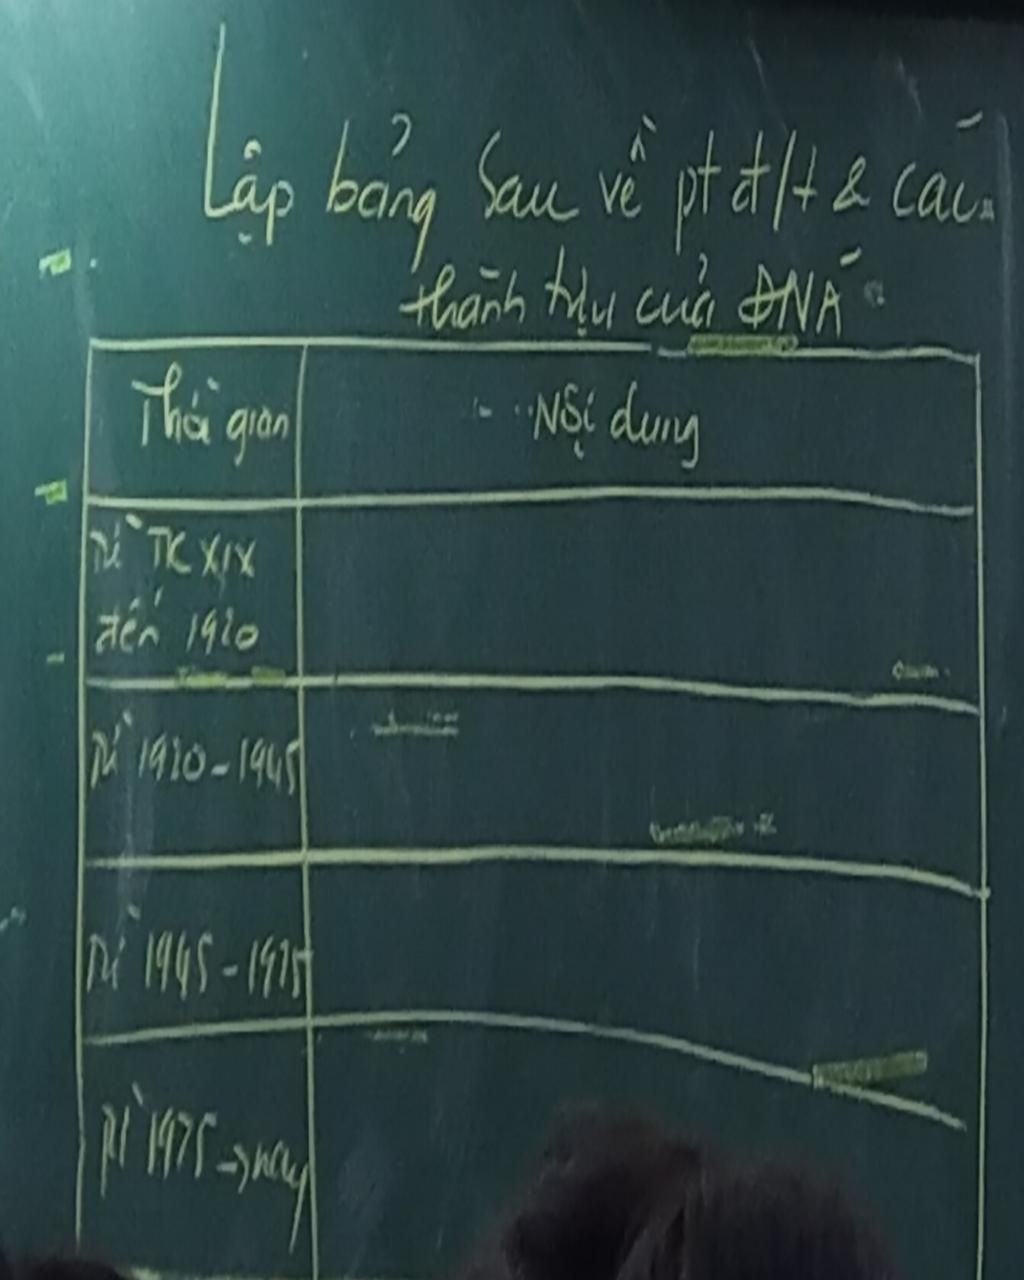 Lập bảng sau về pt đ/t & các
thành tựu của ĐNÁ
Thời gian
Nội dung
Từ TK XIX
đến 1920
Từ 1920 - 1945
Từ 1945 - 1975
Từ 1975 → nay